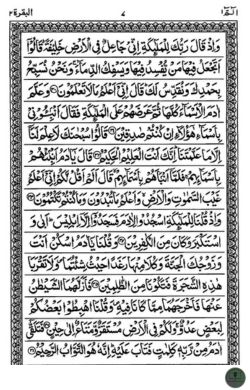 البقرة ٢ ٧ الٓمّٓ ١
وَاِذْ قَالَ رَبُّكَ لِلْمَلٰٓئِكَةِ اِنِّیْ جَاعِلٌ فِی الْاَرْضِ خَلِیْفَةً ؕ قَالُوْۤا
اَتَجْعَلُ فِیْهَا مَنْ یُّفْسِدُ فِیْهَا وَیَسْفِكُ الدِّمَآءَ ۚ وَنَحْنُ نُسَبِّحُ
بِحَمْدِكَ وَنُقَدِّسُ لَكَ ؕ قَالَ اِنِّیْۤ اَعْلَمُ مَا لَا تَعْلَمُوْنَ ۝ وَعَلَّمَ
اٰدَمَ الْاَسْمَآءَ كُلَّهَا ثُمَّ عَرَضَهُمْ عَلَی الْمَلٰٓئِكَةِ ۙ فَقَالَ اَنْۢبِـُٔوْنِیْ
بِاَسْمَآءِ هٰۤؤُلَآءِ اِنْ كُنْتُمْ صٰدِقِیْنَ ۝ قَالُوْا سُبْحٰنَكَ لَا عِلْمَ لَنَاۤ
اِلَّا مَا عَلَّمْتَنَا ؕ اِنَّكَ اَنْتَ الْعَلِیْمُ الْحَكِیْمُ ۝ قَالَ یٰۤاٰدَمُ اَنْۢبِئْهُمْ
بِاَسْمَآئِهِمْ ۚ فَلَمَّاۤ اَنْۢبَاَهُمْ بِاَسْمَآئِهِمْ ۙ قَالَ اَلَمْ اَقُلْ لَّكُمْ اِنِّیْۤ اَعْلَمُ
غَیْبَ السَّمٰوٰتِ وَالْاَرْضِ ۙ وَاَعْلَمُ مَا تُبْدُوْنَ وَمَا كُنْتُمْ تَكْتُمُوْنَ ۝
وَاِذْ قُلْنَا لِلْمَلٰٓئِكَةِ اسْجُدُوْا لِاٰدَمَ فَسَجَدُوْۤا اِلَّاۤ اِبْلِیْسَ ؕ اَبٰی وَ
اسْتَكْبَرَ ۗ وَكَانَ مِنَ الْكٰفِرِیْنَ ۝ وَقُلْنَا یٰۤاٰدَمُ اسْكُنْ اَنْتَ
وَزَوْجُكَ الْجَنَّةَ وَكُلَا مِنْهَا رَغَدًا حَیْثُ شِئْتُمَا ۪ وَلَا تَقْرَبَا
هٰذِهِ الشَّجَرَةَ فَتَكُوْنَا مِنَ الظّٰلِمِیْنَ ۝ فَاَزَلَّهُمَا الشَّیْطٰنُ
عَنْهَا فَاَخْرَجَهُمَا مِمَّا كَانَا فِیْهِ ۪ وَقُلْنَا اهْبِطُوْا بَعْضُكُمْ
لِبَعْضٍ عَدُوٌّ ۚ وَلَكُمْ فِی الْاَرْضِ مُسْتَقَرٌّ وَّمَتَاعٌ اِلٰی حِیْنٍ ۝ فَتَلَقّٰۤی
اٰدَمُ مِنْ رَّبِّهٖ كَلِمٰتٍ فَتَابَ عَلَیْهِ ؕ اِنَّهٗ هُوَ التَّوَّابُ الرَّحِیْمُ ۝